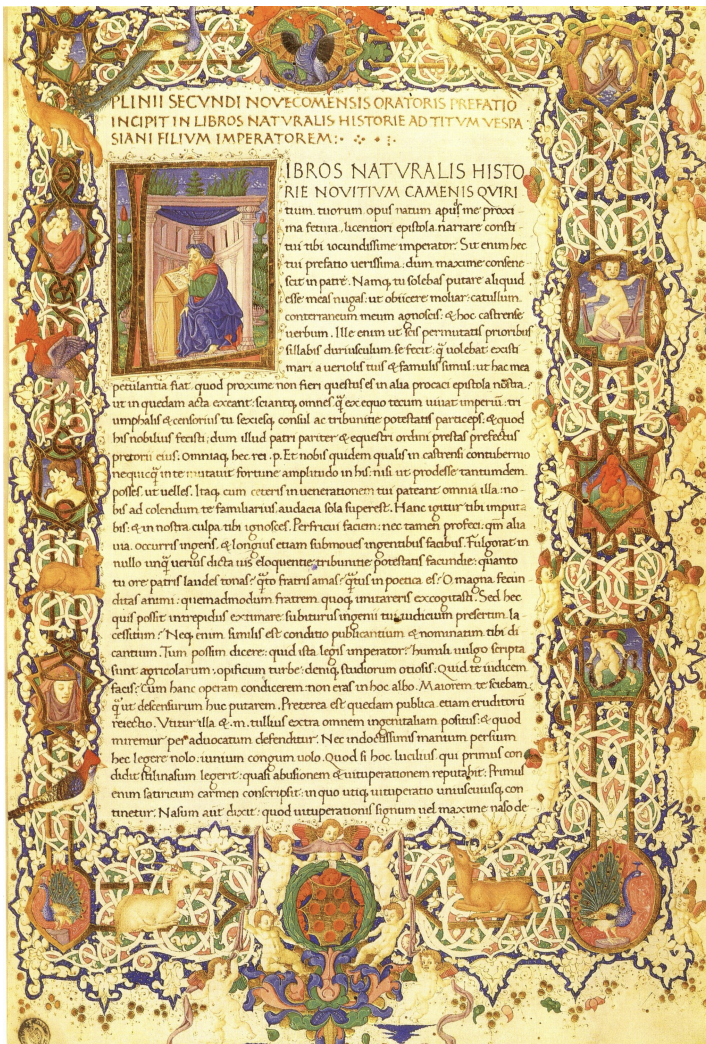 PLINII SECVNDI NOVECOMENSIS ORATORIS PREFATIO
INCIPIT IN LIBROS NATVRALIS HISTORIE AD TITVM VESPA
SIANI FILIVM IMPERATOREM:
LIBROS NATVRALIS HISTO
RIE NOVITIVM CAMENIS QVIRI
tium tuorum opus natum apud me proxi
ma fetura, licentiori epistola narrare consti
tui tibi iocundissime imperator. Sit enim hec
tui prefatio uerissima: dum maxime consene
scit in patre. Namq, tu solebas putare aliquid
esse meas nugas: ut obiicere moliar catullum
conterraneum meum agnoscis: & hoc castrense
uerbum. Ille enim ut scis permutatis prioribus
sillabis duriusculum se fecit: q̃ uolebat existi
mari a ueriolis tuis & famulis simul: ut hac mea
petulantia fiat. quod proxime non fieri questus es in alia procaci epistola nostra.
ut in quedam acta exeant: sciantq, omnes q̃ ex equo tecum uiuat imperiũ: tri
umphalis & censorius tu sexiesq, consul ac tribunitie potestatis particeps: & quod
his nobilius fecisti: dum illud patri pariter & equestri ordini prestas prefectus
pretorii eius. Omniaq, hec rei .p. Et nobis quidem qualis in castrensi contubernio
nequicq̃ in te mutauit fortune amplitudo in his: nisi ut prodesse tantumdem
posses: ut uelles. Itaq, cum ceteris in uenerationem tui pateant omnia illa: no
bis ad colendum te familiarius audacia sola superest. Hanc igitur tibi imputa
bis: & in nostra culpa tibi ignosces. Perfricui faciem: nec tamen profeci. qm̃ alia
uia. occurris ingens. & longius etiam submoues ingentibus facibus. Fulgorat in
nullo unq̃ uerius dicta uis eloquentie: tribunitie potestatis facundie: quanto
tu ore patris laudes tonas: q̃to fratris amas: q̃tus in poetica es: O magna fecun
ditas animi: quemadmodum fratrem quoq, imitareris excogitasti. Sed hec
quis possit intrepidus extimare: subiturus ingenii tui iudicium presertim la
cessitum? Neq, enim similis est conditio publicantium & nominatim tibi di
cantium. Tum possim dicere: quid ista legis imperator? humili uulgo scripta
sunt: agricolarum: opificum turbe: deniq, studiorum otiosis. Quid te iudicem
facis? Cum hanc operam condicerem: non eras in hoc albo. Maiorem te sciebam:
q̃ ut descensurum huc putarem. Preterea est quedam publica etiam eruditorũ
reiectio. Vtitur illa & .m. tullius extra omnem ingenii aliam positus: & quod
miremur per aduocatum defenditur. Nec indoctissimis manium persium
hec legere nolo: iunium congum uolo. Quod si hoc lucilius qui primus con
didit stili nasum legerit: quasi abusionem & uituperationem reputabit: Primus
enim satiricum carmen conscripsit: in quo utiq, uituperatio uniuscuiusq, con
tinetur. Nasum aut̃ dixit: quod uituperationis signum uel maxime naso de